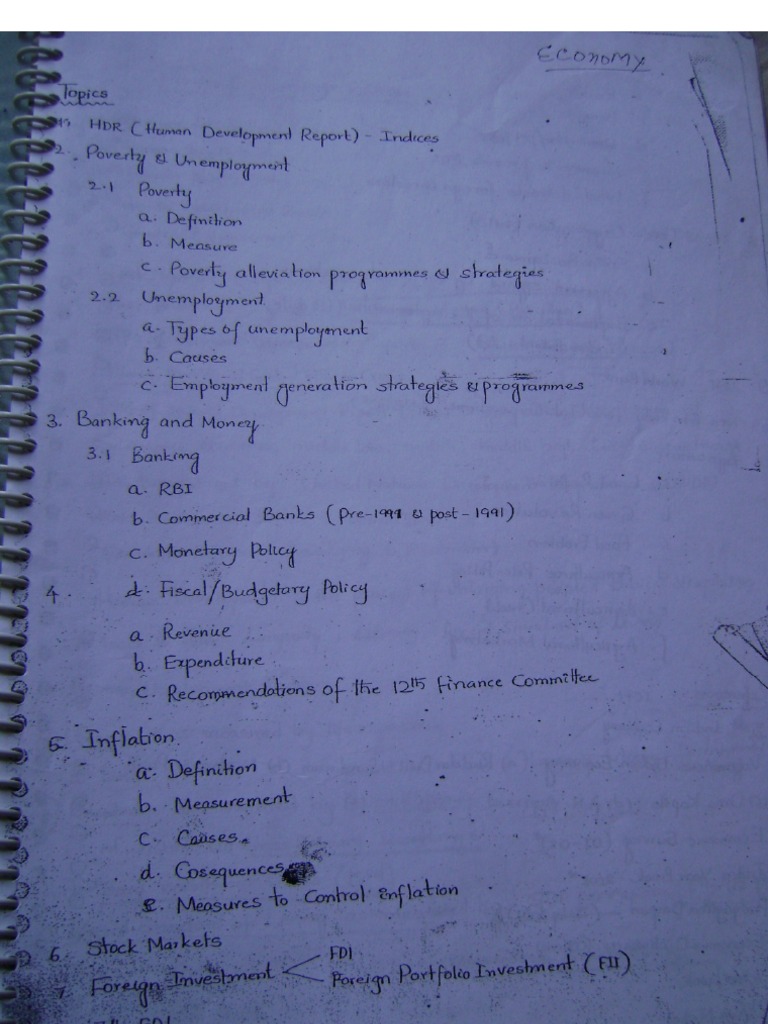 ECONOMY
Topics
1. HDR (Human Development Report) - Indices
2. Poverty & Unemployment
2.1 Poverty
a. Definition
b. Measure
c. Poverty alleviation programmes & strategies
2.2 Unemployment
a. Types of unemployment
b. Causes
c. Employment generation strategies & programmes
3. Banking and Money
3.1 Banking
a. RBI
b. Commercial Banks (Pre-1991 & post-1991)
c. Monetary Policy
4. d. Fiscal/Budgetary Policy
a. Revenue
b. Expenditure
c. Recommendations of the 12th Finance Committee
5. Inflation
a. Definition
b. Measurement
c. Causes
d. Cosequences
e. Measures to Control inflation
6. Stock Markets
7. Foreign Investment
FDI
Foreign Portfolio Investment (FII)